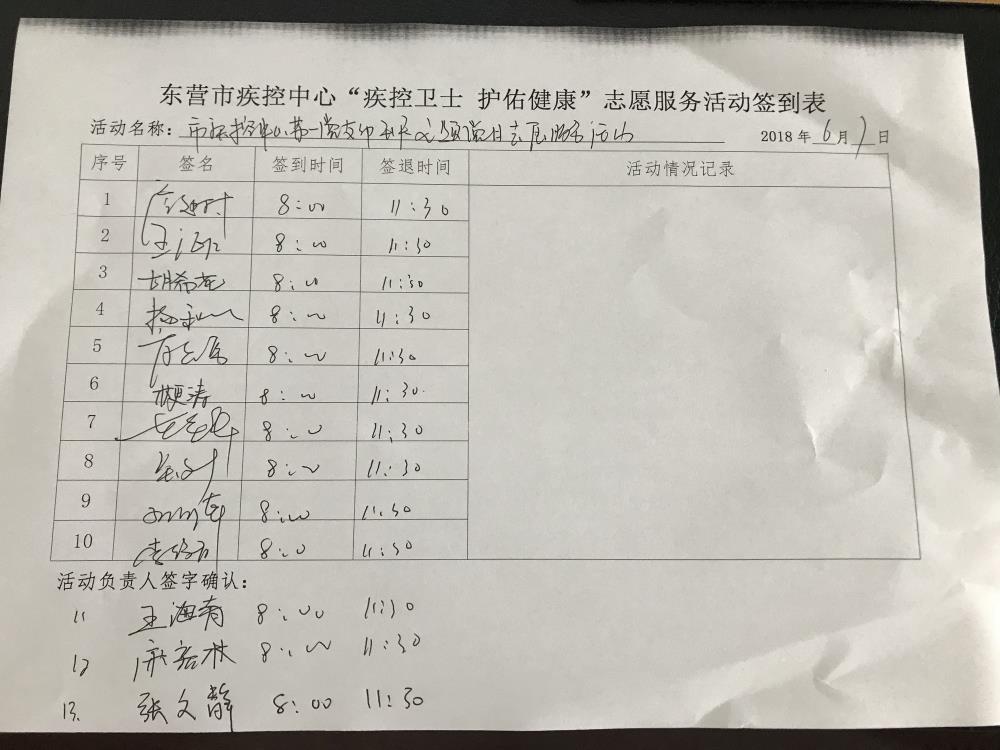 东营市疾控中心“疾控卫士 护佑健康”志愿服务活动签到表
活动名称：市疾控中心第一党支部开展主题党日志愿服务活动
2018年6月7日
序号 签名 签到时间 签退时间 活动情况记录
1 8:00 11:30
2 8:00 11:30
3 胡希花 8:00 11:30
4 8:00 11:30
5 8:00 11:30
6 8:00 11:30
7 8:00 11:30
8 8:00 11:30
9 8:00 11:30
10 8:00 11:30
活动负责人签字确认：
11 王海青 8:00 11:30
12 8:00 11:30
13. 张文静 8:00 11:30